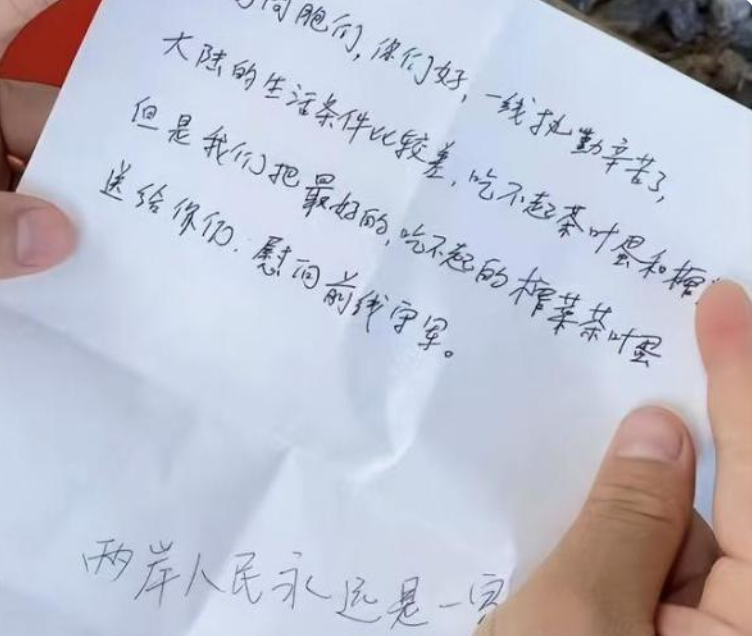 同胞们,你们好,一线执勤辛苦了,
大陆的生活条件比较差,吃不起茶叶蛋和榨
但是我们把最好的,吃不起的榨菜茶叶蛋
送给你们.慰问前线守军。
两岸人民永远是一家